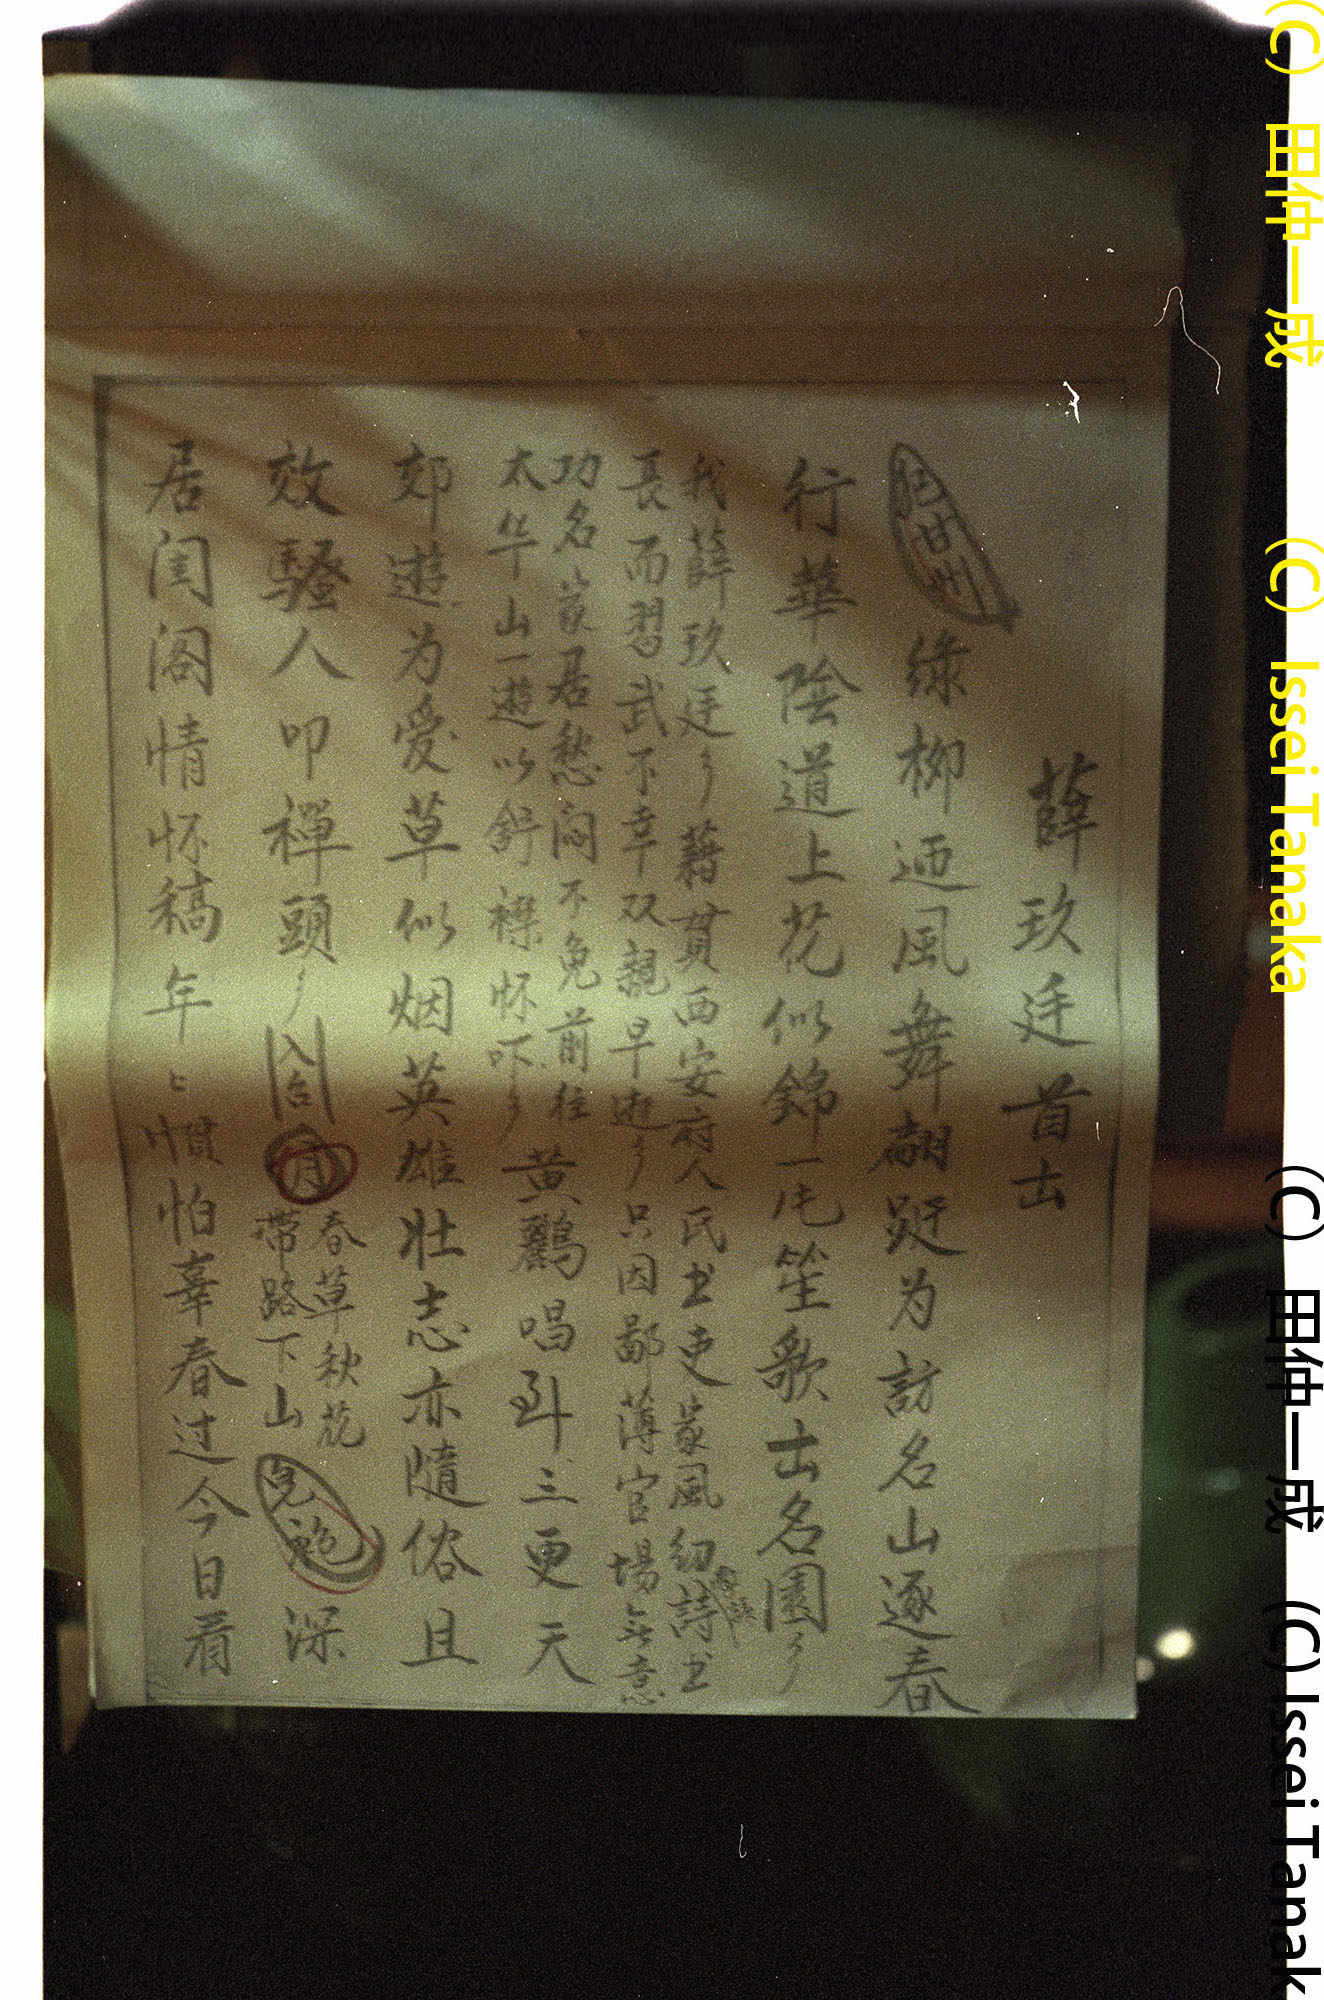 薛玖廷首出
绿柳迎风舞翩跹为訪名山逐春
行華陰道上花似錦一毛笙歌出名園
我薛玖廷藉貫西安府人氏书吏家風幼詩书
長而習武不幸双親早逝只因鄙薄官場無意
功名家居愁闷不免前往
太华山一遊以舒襟怀吓
黄鸝唱到三更天
郊遊为爱草似烟英雄壮志亦隨俗且
效騷人叩禪頭
入台
春草秋花
带路下山
深
居闺阁情怀稿年
惯怕辜春过今日看
(C) 田仲一成 (C) Issei Tanaka
(C) 田仲一成 (C) Issei Tanak